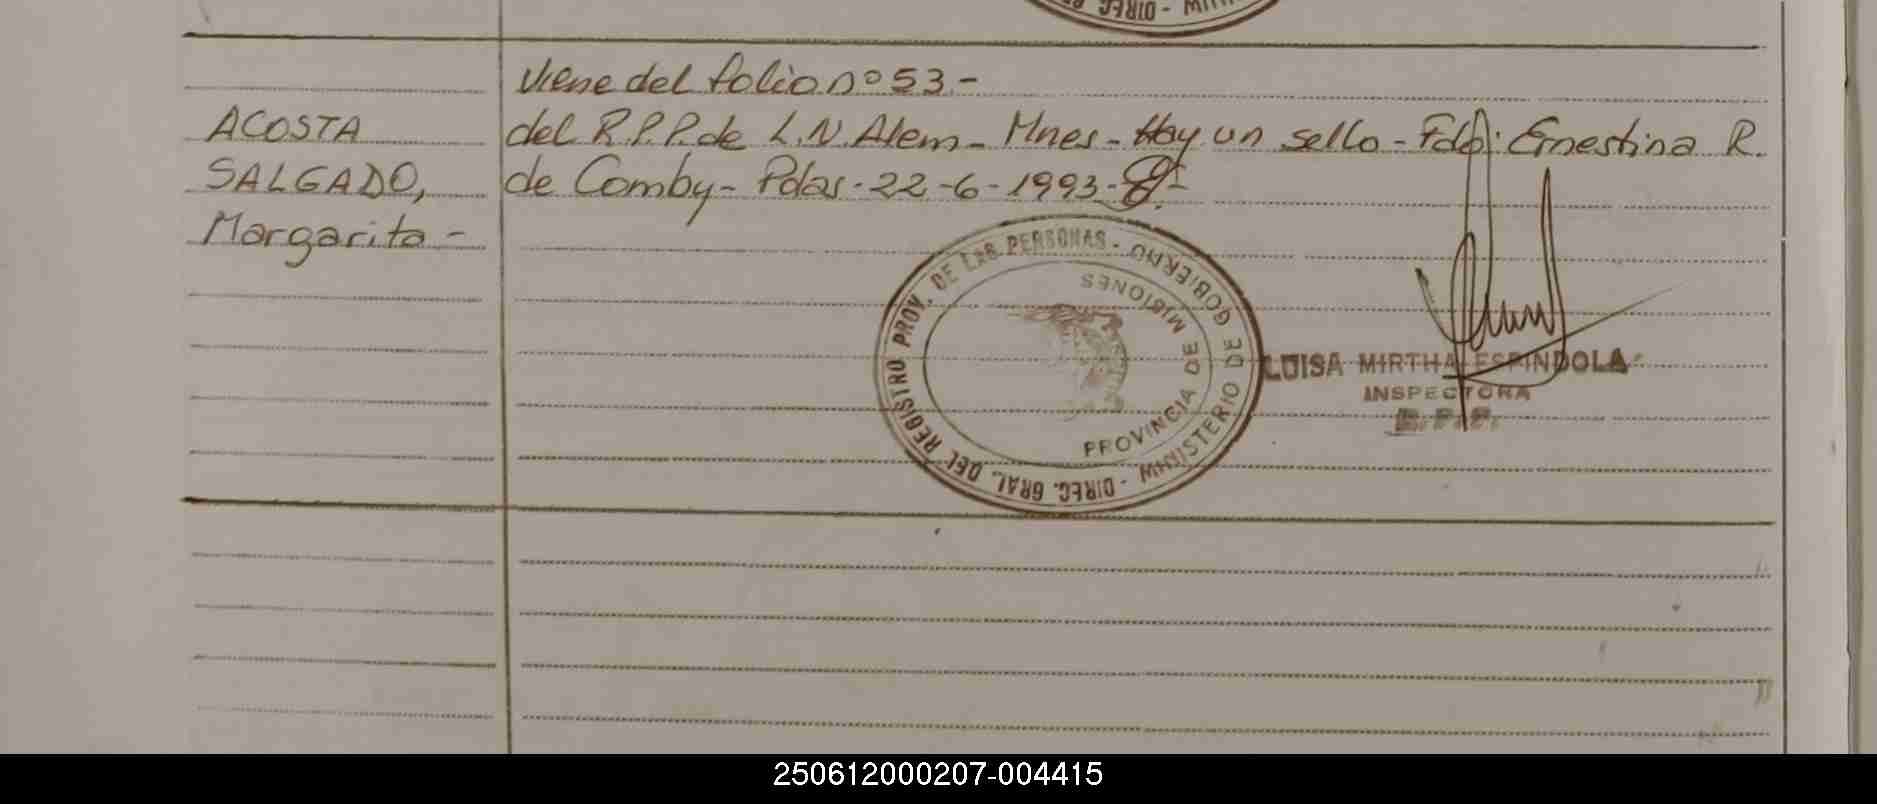 Viene del folio nº 53 -
ACOSTA
SALGADO,
Margarita -
del R.P.P. de L.N. Alem - Mnes - Hay un sello - Fdo: Ernestina R.
de Comby - Pdas - 22-6-1993 -
DIREC. GRAL. DEL REGISTRO PROV. DE LAS PERSONAS - MINISTERIO DE GOBIERNO
PROVINCIA DE MISIONES
LUISA MIRTHA ESPINDOLA
INSPECTORA
R.P.P.
250612000207-004415